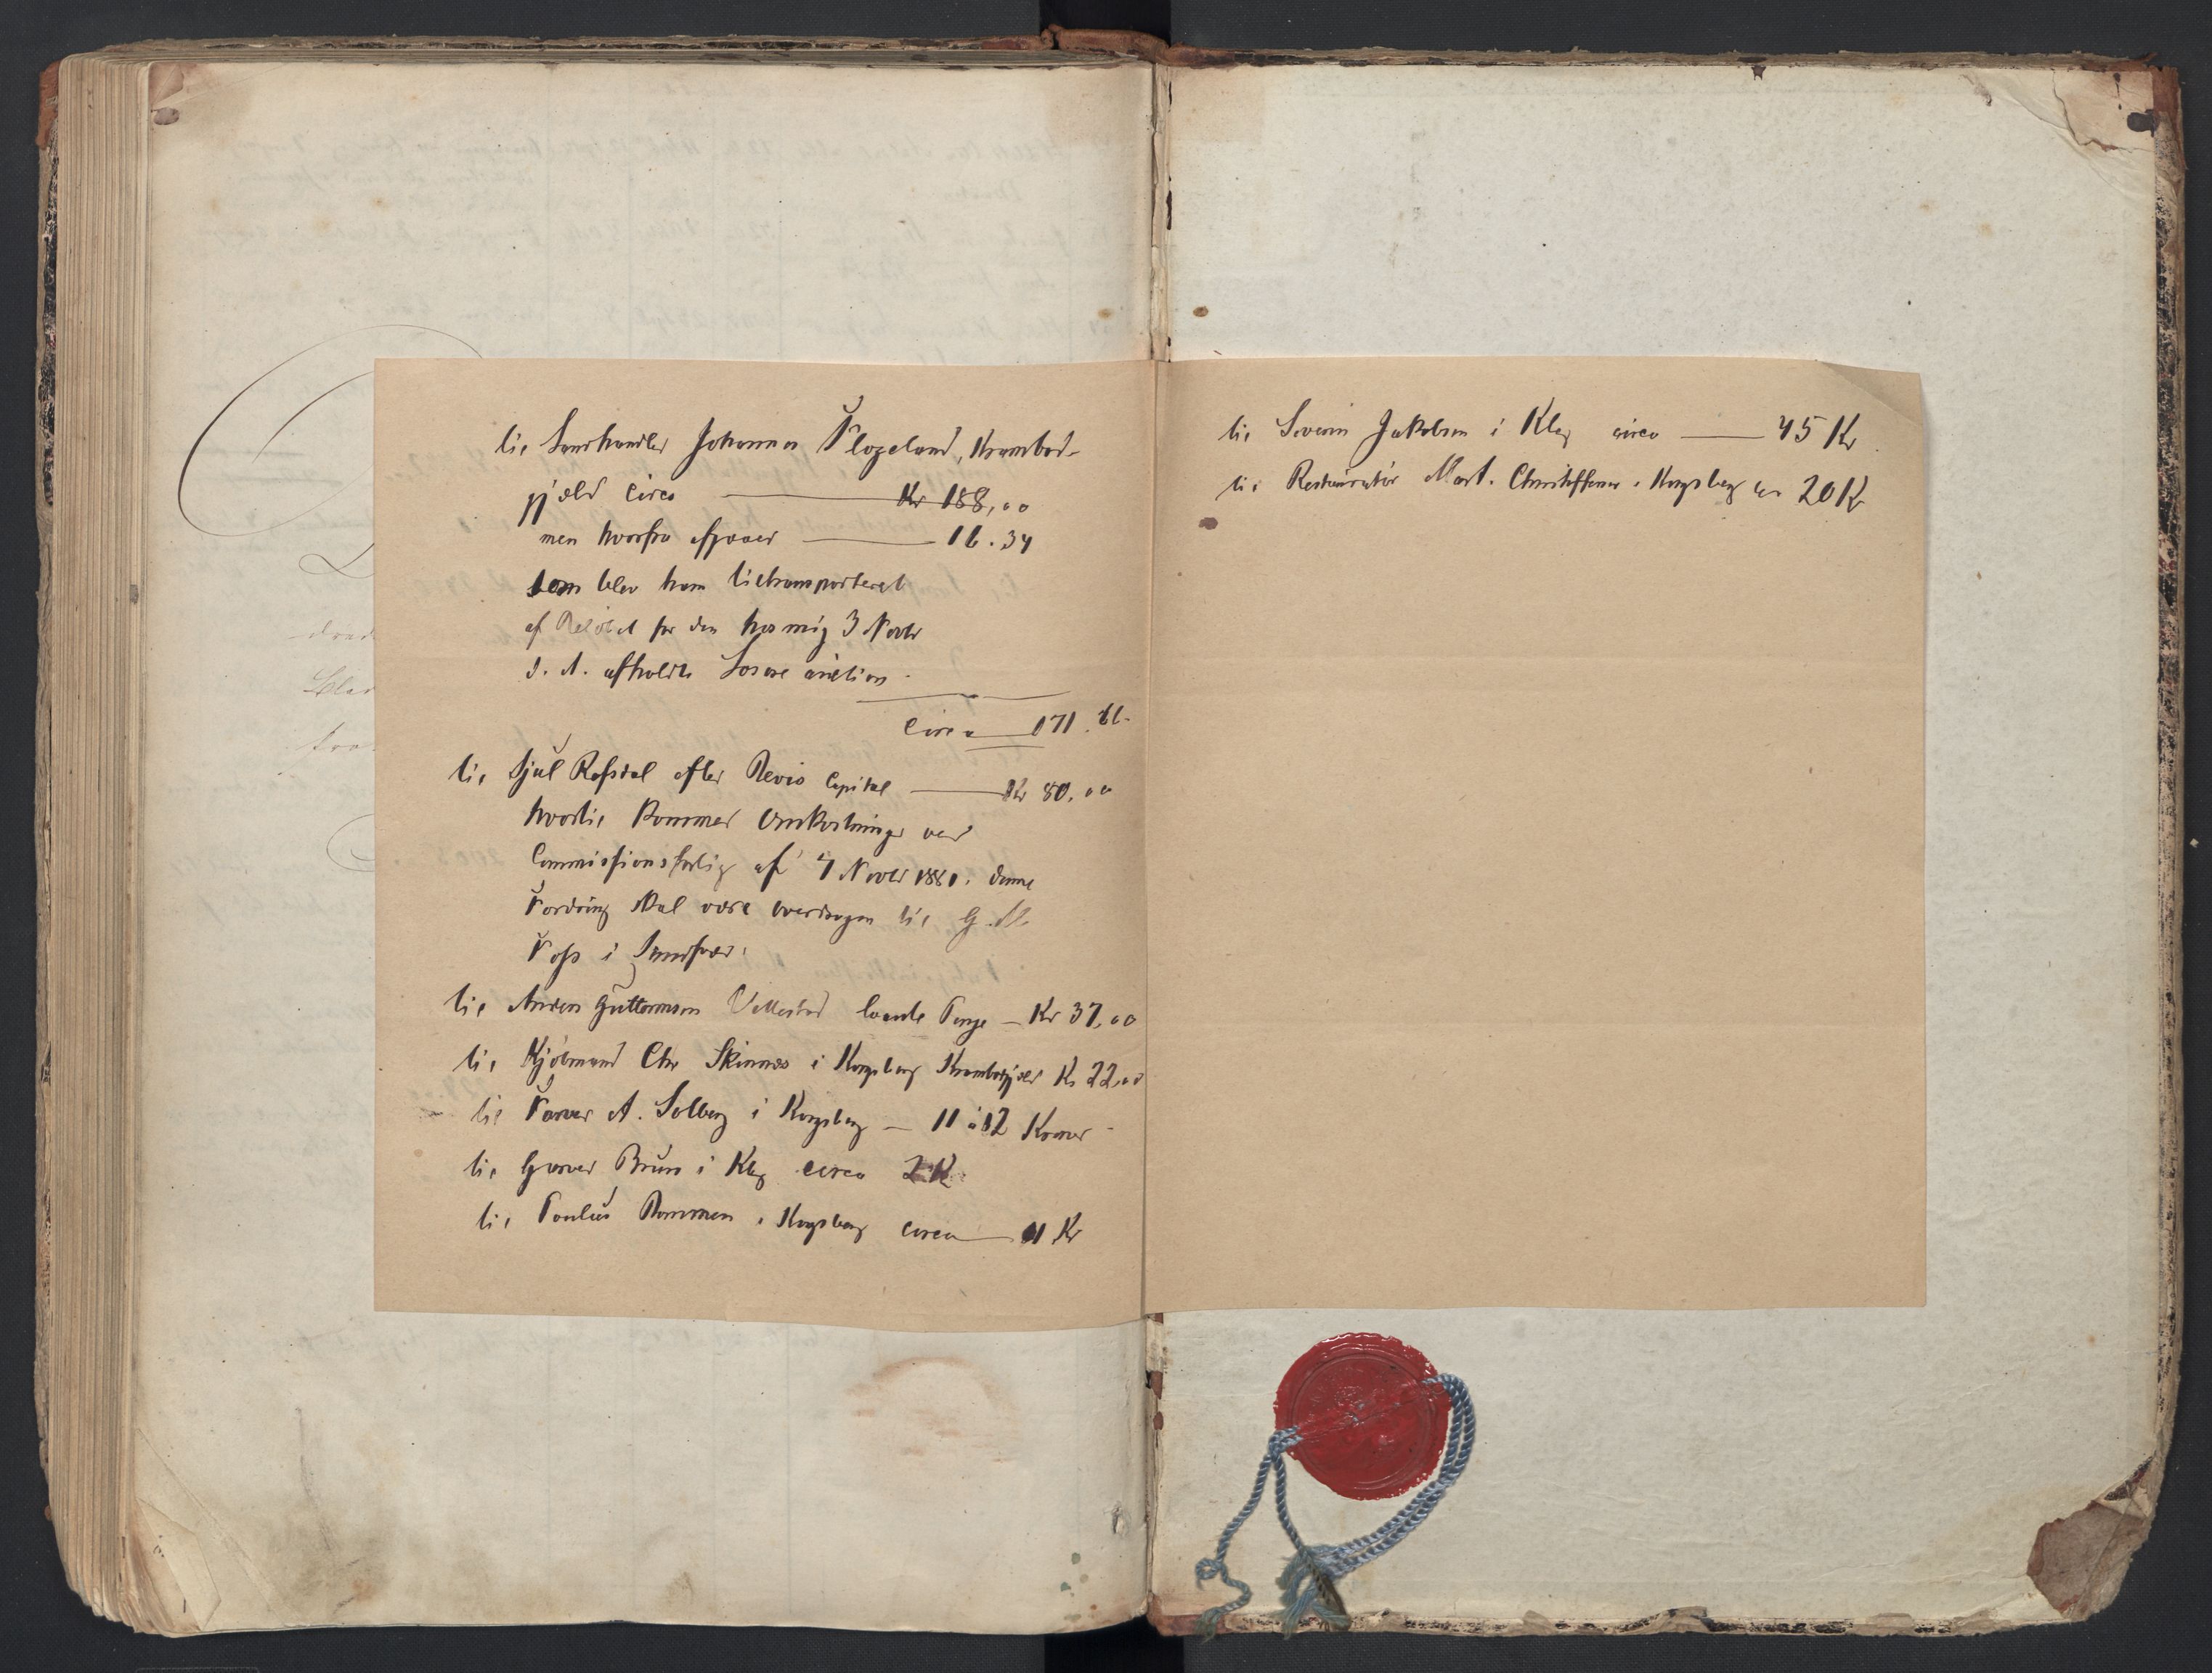 til Landhandler Johannes Flogeland, Krambod-
gjæld circa — Kr 188,00
men hvorfra afgaaer — 16.34
som blev ham tiltransporteret
af for den hos mig 3 Novbr
d. A. afholdte Løsøre auction
Circa 171.66
til Sjul Rofsdal efter Bevis Capital — Kr 80,00
hvortil kommer Omkostninger ved
Commissionsforlig af 4 Novbr 1881. denne
Fordring skal være overdragen til G. A.
Foss i Sandsvær.
til Anders Guttormsen laante Penge — Kr 37,00
til Kjøbmand Chr Skinnes i Kongsberg Krambodgjæld Kr 22,00
til Farver A. Solberg i Kongsberg — 11 à 12 Kroner
til Garver Bruu i Kbg circa 2 K
til Paulus Rommen i Kongsberg circa — 11 Kr
til Severin Jakobsen i Kbg circa — 45 Kr
til Restauratør Mart. Christoffersen i Kongsberg ca 20 Kr